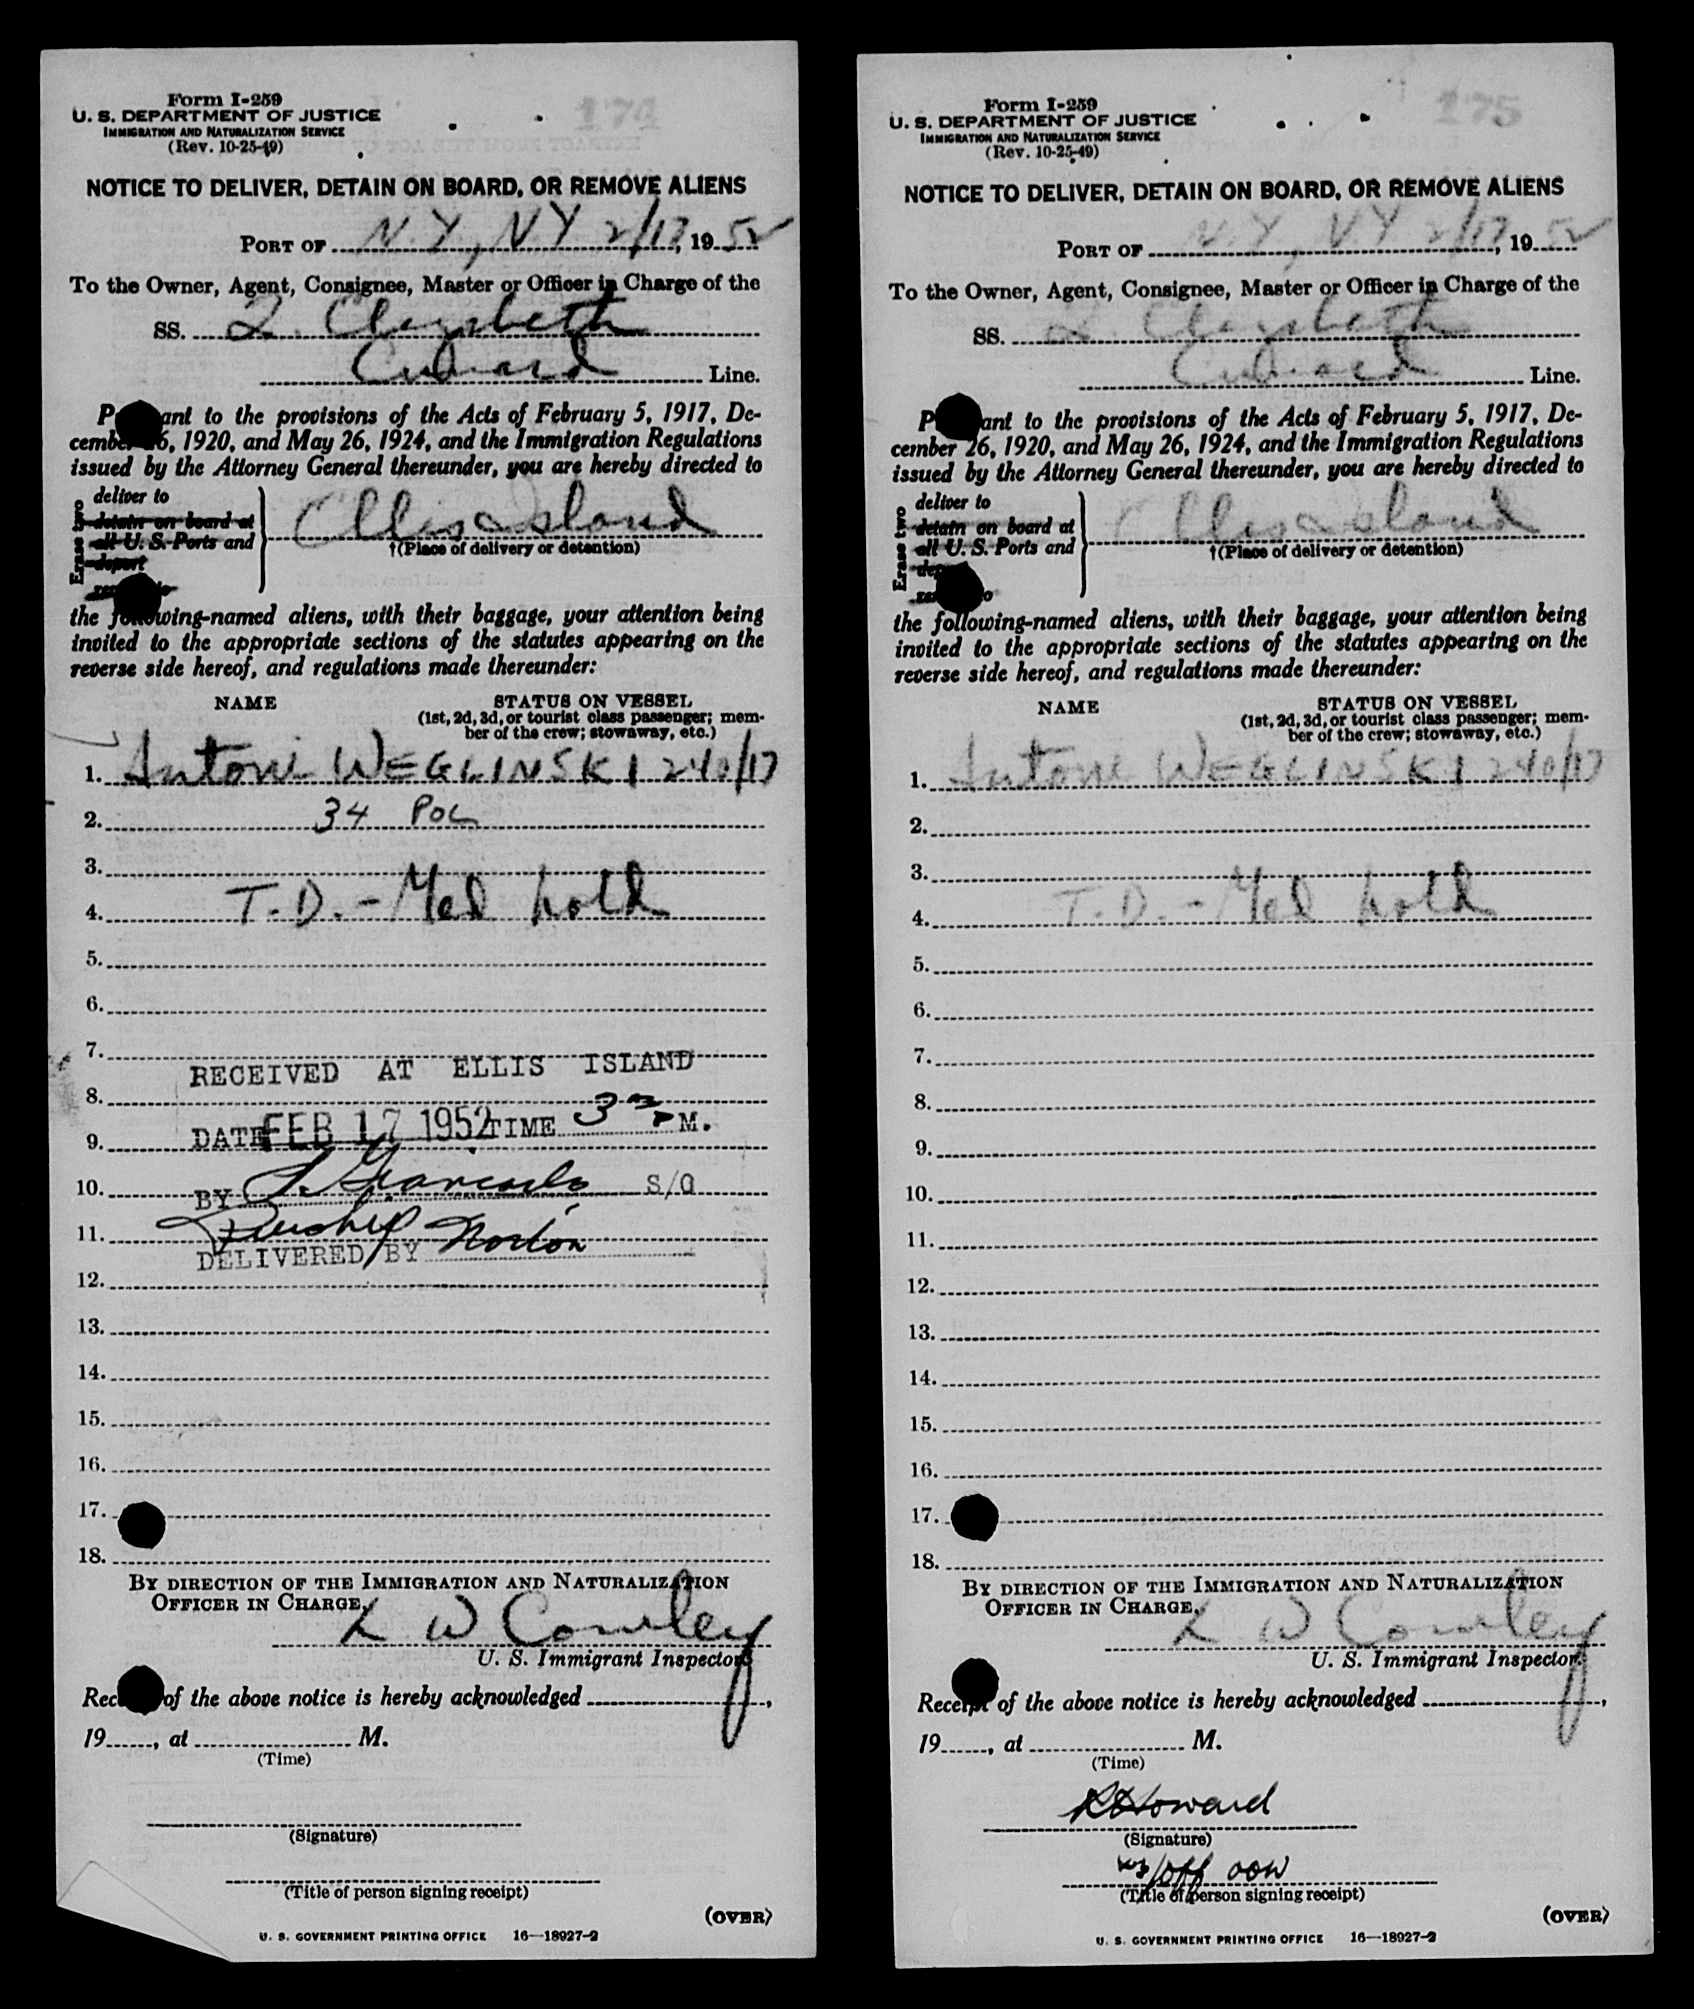 Form I-259
U. S. DEPARTMENT OF JUSTICE
IMMIGRATION AND NATURALIZATION SERVICE
(Rev. 10-25-49)
174
NOTICE TO DELIVER, DETAIN ON BOARD, OR REMOVE ALIENS
PORT OF N.Y., NY 2/17, 1952
To the Owner, Agent, Consignee, Master or Officer in Charge of the
SS. Q. Elizabeth
Cunard Line.
P ant to the provisions of the Acts of February 5, 1917, De-
cember 26, 1920, and May 26, 1924, and the Immigration Regulations
issued by the Attorney General thereunder, you are hereby directed to
Erase two
deliver to
detain on board at
all U. S. Ports and
deport
Ellis Island
†(Place of delivery or detention)
the following-named aliens, with their baggage, your attention being
invited to the appropriate sections of the statutes appearing on the
reverse side hereof, and regulations made thereunder:
NAME STATUS ON VESSEL
(1st, 2d, 3d, or tourist class passenger; mem-
ber of the crew; stowaway, etc.)
1. Antoni WEGLINSKI 240/17
2. 34 POL
3.
4. T.D. - Med hold
5.
6.
7.
RECEIVED AT ELLIS ISLAND
8.
9. DATE FEB 17 1952 TIME 3 P M.
10. BY S/O
11.
DELIVERED BY Norton
12.
13.
14.
15.
16.
17.
18.
BY DIRECTION OF THE IMMIGRATION AND NATURALIZATION
OFFICER IN CHARGE,
L W Cowley
U. S. Immigrant Inspector.
Rec of the above notice is hereby acknowledged ,
19 , at M.
(Time)
(Signature)
(Title of person signing receipt)
(OVER)
U. S. GOVERNMENT PRINTING OFFICE 16—18927-2
Form I-259
U. S. DEPARTMENT OF JUSTICE
IMMIGRATION AND NATURALIZATION SERVICE
(Rev. 10-25-49)
175
NOTICE TO DELIVER, DETAIN ON BOARD, OR REMOVE ALIENS
PORT OF N.Y., N.Y 2/17, 1952
To the Owner, Agent, Consignee, Master or Officer in Charge of the
SS. Q Elizabeth
Cunard Line.
P ant to the provisions of the Acts of February 5, 1917, De-
cember 26, 1920, and May 26, 1924, and the Immigration Regulations
issued by the Attorney General thereunder, you are hereby directed to
Erase two
deliver to
detain on board at
all U. S. Ports and
Ellis Island
†(Place of delivery or detention)
the following-named aliens, with their baggage, your attention being
invited to the appropriate sections of the statutes appearing on the
reverse side hereof, and regulations made thereunder:
NAME STATUS ON VESSEL
(1st, 2d, 3d, or tourist class passenger; mem-
ber of the crew; stowaway, etc.)
1. Antoni WEGLINSKI 240/17
2.
3.
4. T.D. - Med hold
5.
6.
7.
8.
9.
10.
11.
12.
13.
14.
15.
16.
17.
18.
BY DIRECTION OF THE IMMIGRATION AND NATURALIZATION
OFFICER IN CHARGE,
L W Cowley
U. S. Immigrant Inspector.
Receipt of the above notice is hereby acknowledged ,
19 , at M.
(Time)
Howard
(Signature)
off oow
(Title of person signing receipt)
(OVER)
U. S. GOVERNMENT PRINTING OFFICE 16—18927-2